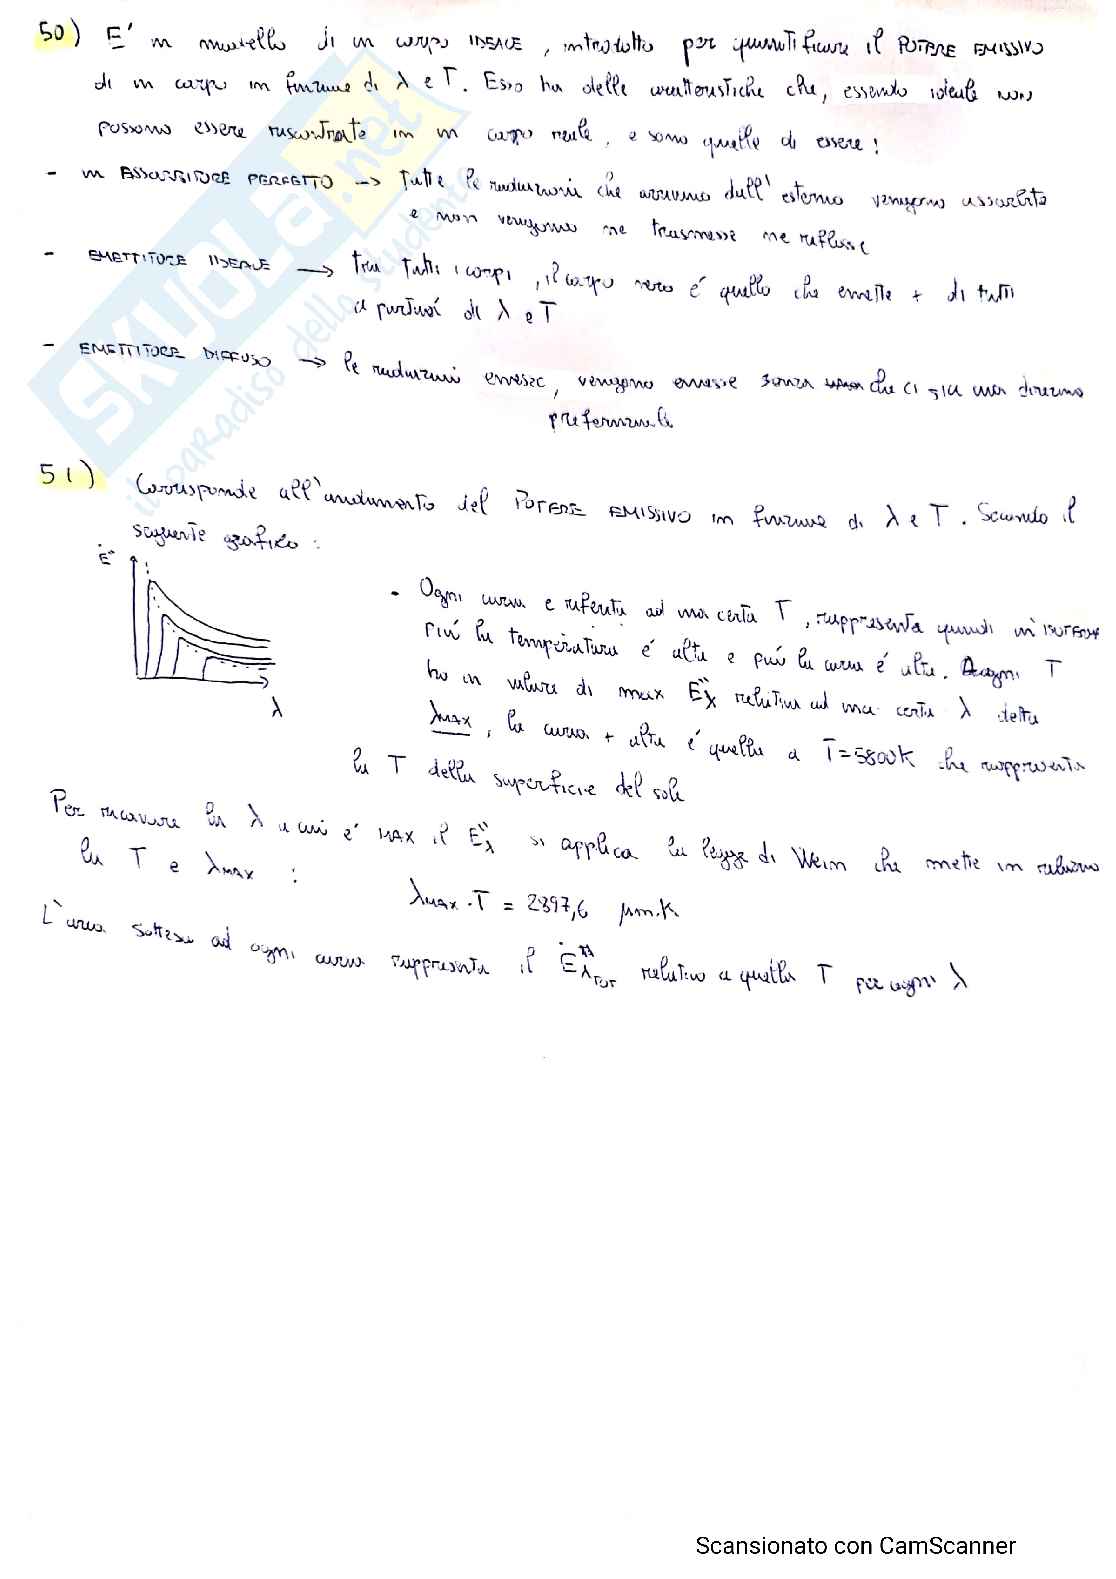 50) E' un modello di un corpo IDEALE, introdotto per quantificare il POTERE EMISSIVO
di un corpo in funzione di λ e T. Esso ha delle caratteristiche che, essendo ideale non
possono essere riscontrate in un corpo reale, e sono quelle di essere:
- un ASSORBITORE PERFETTO → tutte le radiazioni che arrivano dall'esterno vengono assorbite
e non vengono ne trasmesse ne riflesse
- EMETTITORE IDEALE → tra tutti i corpi, il corpo nero é quello che emette + di tutti
a parità di λ e T
- EMETTITORE DIFFUSO → le radiazioni emesse, vengono emesse senza che ci sia una direzione
preferenziale
51) Corrisponde all'andamento del POTERE EMISSIVO in funzione di λ e T. Secondo il
seguente grafico:
Ė"
λ
- Ogni curva e riferita ad una certa T, rappresenta quindi un'ISOTERMA
Più la temperatura é alta e più la curva é alta. Ad ogni T
ho un valore di max E"λ relativa ad una certa λ detta
λMAX, la curva + alta é quella a T=5800K che rappresenta
la T della superficie del sole
Per ricavare la λ a cui é MAX il E"λ si applica la legge di Wein che mette in relazione
la T e λMAX :
λMAX · T = 2897,6 μm·K
L'area sottesa ad ogni curva rappresenta il Ė"λTOT relativo a quella T per ogni λ
SKUOLA.net
il paradiso dello studente
Scansionato con CamScanner